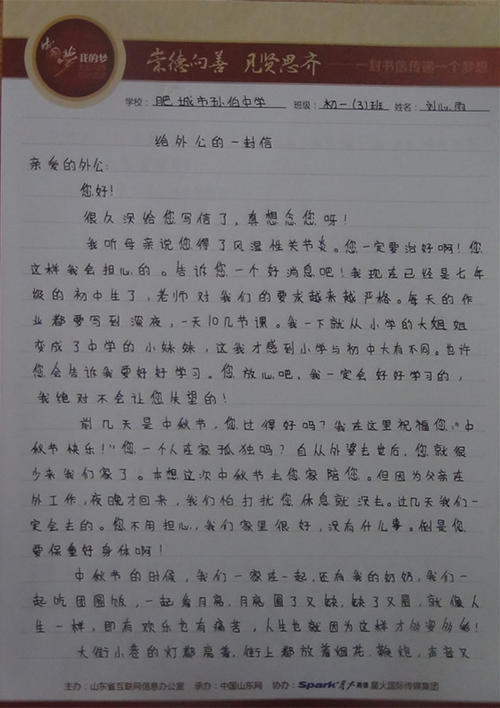 中国梦 我的梦
崇德向善 见贤思齐
一封书信传递一个梦想
学校：肥城市孙伯中学 班级：初一(3)班 姓名：刘心雨
给外公的一封信
亲爱的外公：
您好！
很久没给您写信了，真想念您呀！
我听母亲说您得了风湿性关节炎。您一定要治好啊！您
这样我会担心的。告诉您一个好消息吧！我现在已经是七年
级的初中生了，老师对我们的要求越来越严格。每天的作
业都要写到深夜，一天10几节课。我一下就从小学的大姐姐
变成了中学的小妹妹，这我才感到小学与初中大有不同。也许
您会告诉我要好好学习。您放心吧，我一定会好好学习的，
我绝对不会让您失望的！
前几天是中秋节，您过得好吗？我在这里祝福您："中
秋节快乐！"您一个人在家孤独吗？自从外婆去世后，您就很
少来我们家了。本想这次中秋节去您家陪您。但因为父亲在
外工作，夜晚才回来，我们怕打扰您休息就没去。过几天我们一
定会去的。您不用担心，我们家里很好，没有什么事。倒是您
要保重好身体啊！
中秋节的时候，我们一家在一起，还有我的奶奶，我们一
起吃团圆饭，一起看月亮，月亮圆了又缺，缺了又圆，就像人
生一样，即有欢乐也有痛苦，人生也就因为这样才能够
大街小巷的灯都亮着，街上都放着烟花、鞭炮，声音又
主办：山东省互联网信息办公室 承办：中国山东网 协办：Spark星火英语 星火国际传媒集团